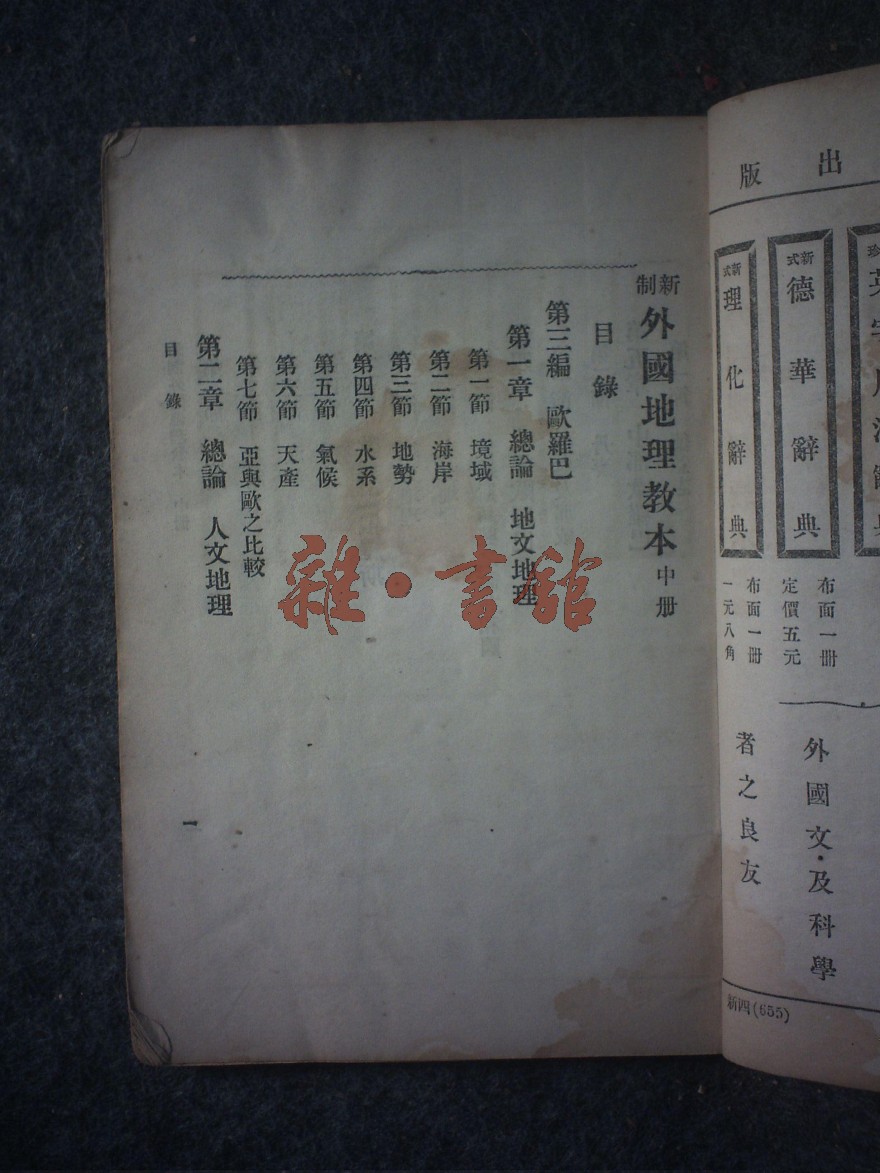 新制外國地理教本 中册
目錄
第三編 歐羅巴
第一章 總論 地文地理
第一節 境域
第二節 海岸
第三節 地勢
第四節 水系
第五節 氣候
第六節 天產
第七節 亞與歐之比較
第二章 總論 人文地理
目錄
一
雜·書館
出版
新式德華辭典
布面一冊
定價五元
新式理化辭典
布面一冊
一元八角
外國文·及科學
者之良友
新四(655)